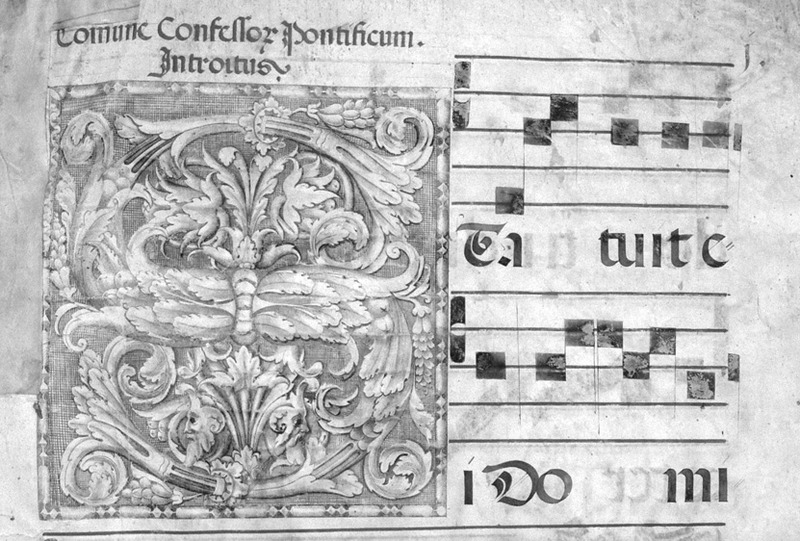 Comune Confessoꝝ Pontificum.
Introitus
STa tuit e=
i Do mi